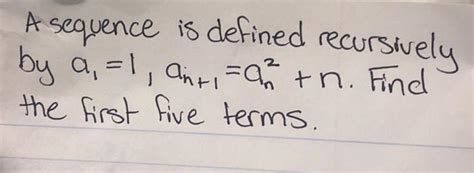 A sequence is defined recursively
by a₁ = 1, aₙ₊₁ = aₙ² + n. Find
the first five terms.